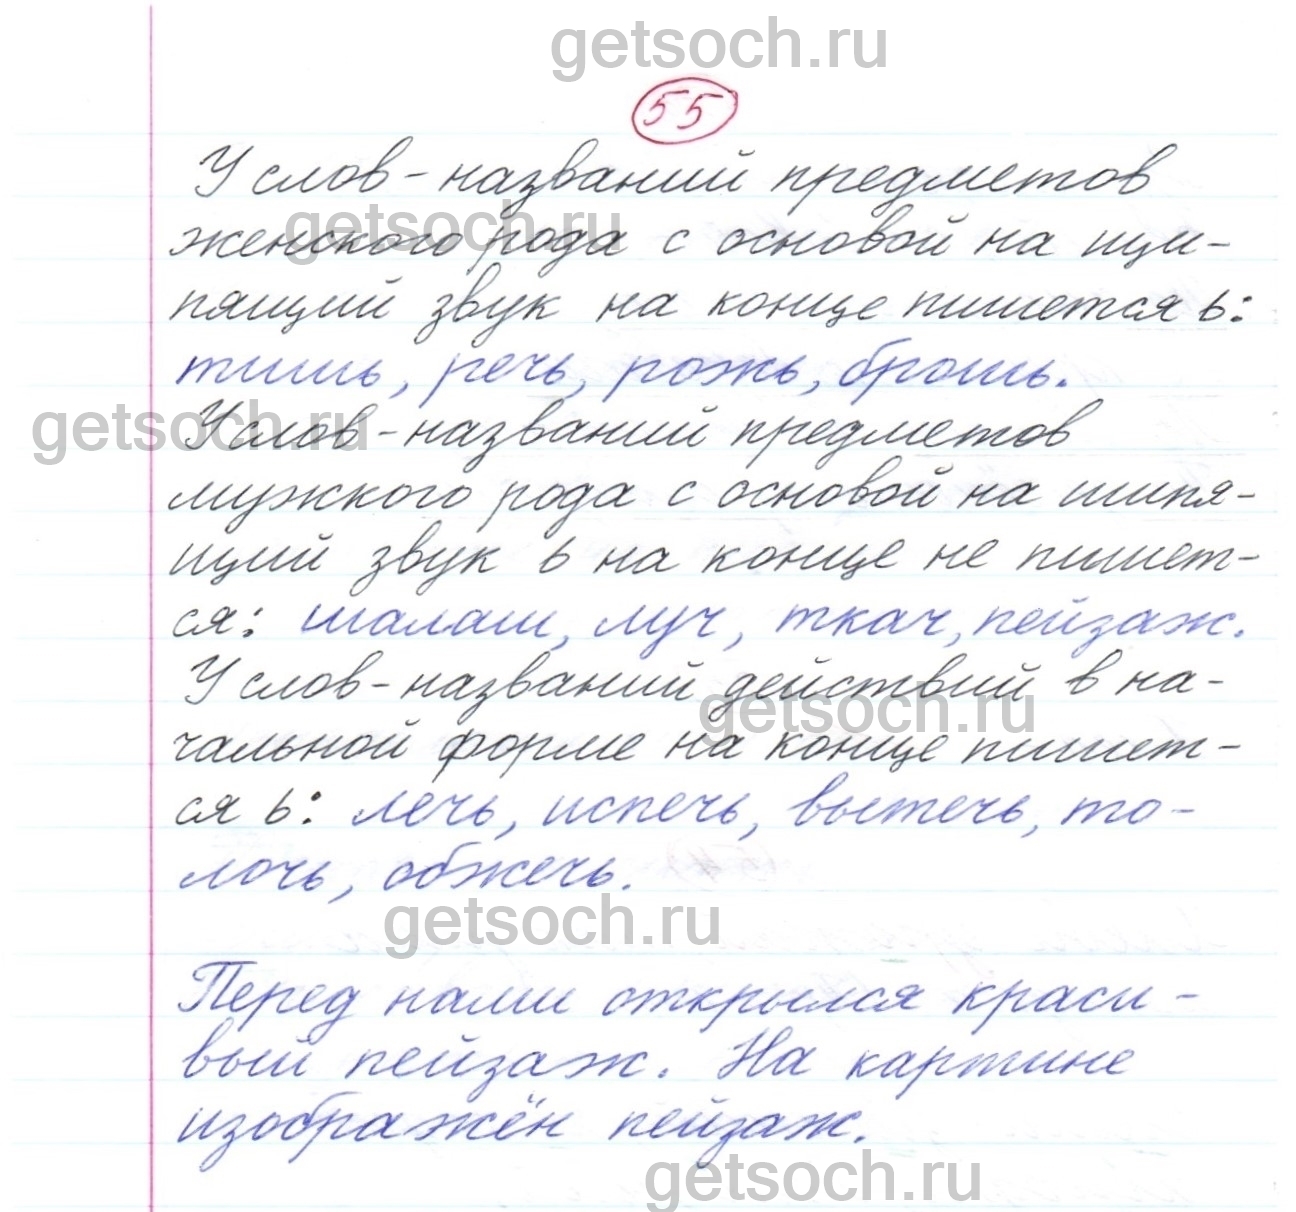 getsoch.ru
55
У слов-названий предметов
getsoch.ru
женского рода с основой на ши-
пящий звук на конце пишется ь:
тишь, речь, рожь, брошь.
getsoch.ru
У слов-названий предметов
мужского рода с основой на шипя-
щий звук ь на конце не пишет-
ся: шалаш, луч, ткач, пейзаж.
У слов-названий действий в на-
getsoch.ru
чальной форме на конце пишет-
ся ь: лечь, испечь, вытечь, то-
лочь, обжечь.
getsoch.ru
Перед нами открылся краси-
вый пейзаж. На картине
изображён пейзаж.
getsoch.ru